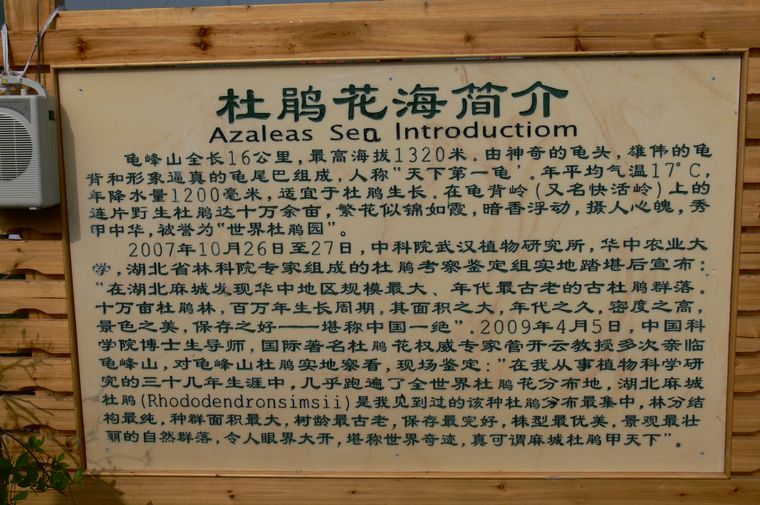 杜鹃花海简介
Azaleas Sea Introductiom
龟峰山全长16公里，最高海拔1320米．由神奇的龟头，雄伟的龟
背和形象逼真的龟尾巴组成，人称“天下第一龟”．年平均气温17°C，
年降水量1200毫米，适宜于杜鹃生长．在龟背岭（又名快活岭）上的
连片野生杜鹃达十万余亩，繁花似锦如霞，暗香浮动，摄人心魄，秀
甲中华，被誉为“世界杜鹃园”。
2007年10月26日至27日，中科院武汉植物研究所，华中农业大
学，湖北省林科院专家组成的杜鹃考察鉴定组实地踏堪后宣布：
“在湖北麻城发现华中地区规模最大、年代最古老的古杜鹃群落。
十万亩杜鹃林，百万年生长周期，其面积之大，年代之久，密度之高，
景色之美，保存之好——堪称中国一绝”．2009年4月5日，中国科
学院博士生导师，国际著名杜鹃花权威专家管开云教授多次亲临
龟峰山，对龟峰山杜鹃实地察看，现场鉴定：“在我从事植物科学研
究的三十几年生涯中，几乎跑遍了全世界杜鹃花分布地，湖北麻城
杜鹃(Rhododendronsimsii)是我见到过的该种杜鹃分布最集中，林分结
构最纯，种群面积最大，树龄最古老，保存最完好，株型最优美，景观最壮
丽的自然群落，令人眼界大开，堪称世界奇迹，真可谓麻城杜鹃甲天下”。